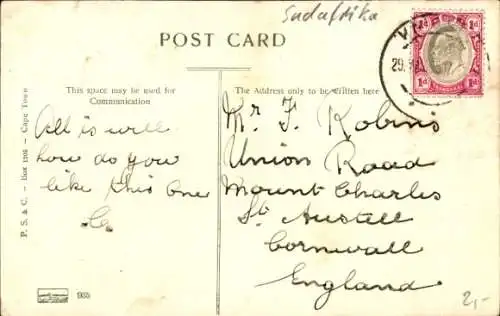 Sudafrika
POST CARD
This space may be used for
Communication
The Address only to be written here
1d 1d
1d TRANSVAAL 1d
29.
All is well
how do you
like this one
Mr. F. Robins
Union Road
Mount Charles
St. Austell
Cornwall
England
P. S. & C. - Box 1108 - Cape Town
935
2,-